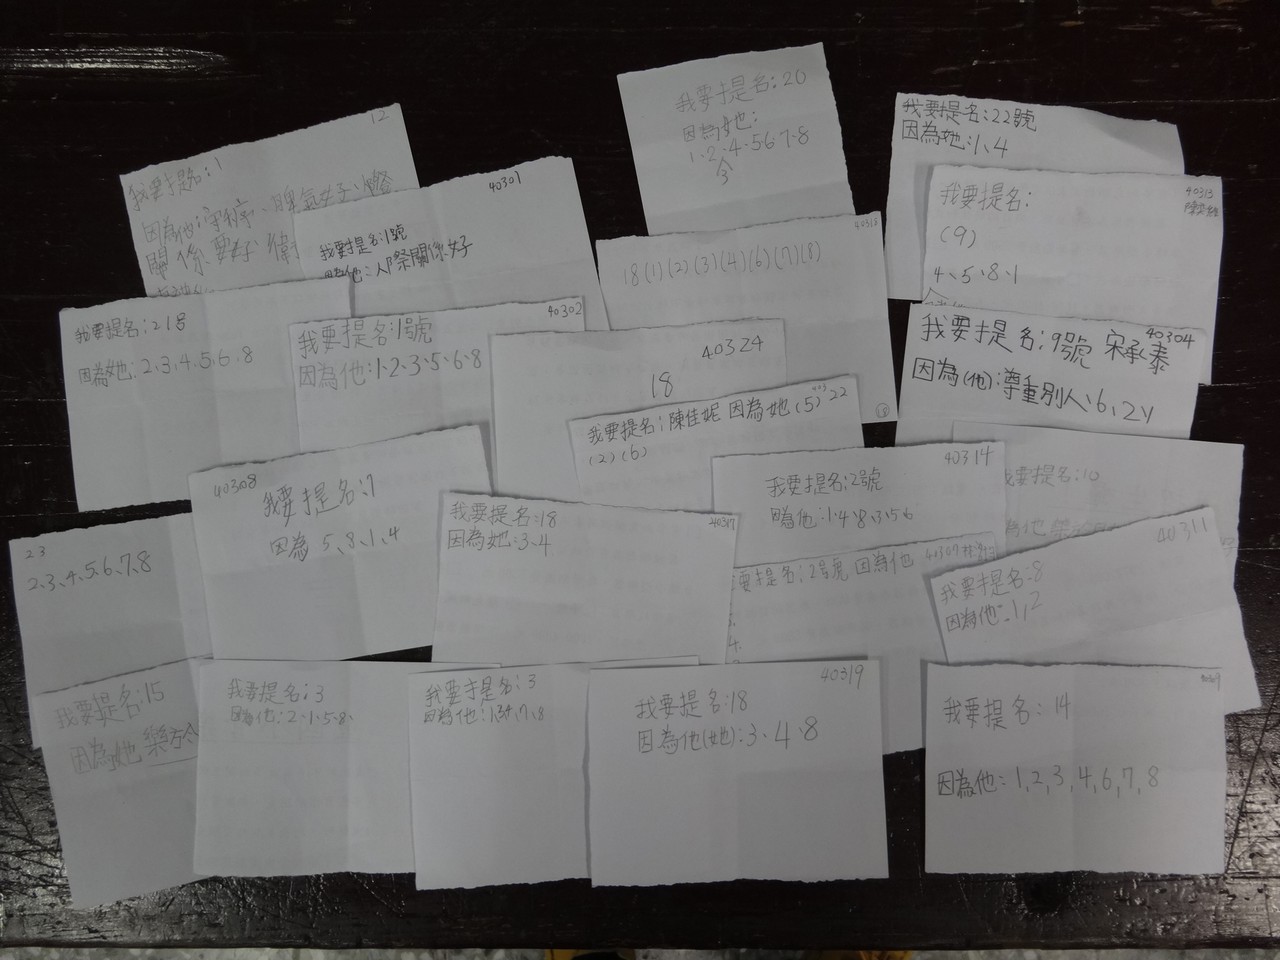 12
我要提名:1
因為他:守秩序、脾氣好、人際
關係要好
40301
我要提名:1號
因為他:人際關係好
我要提名:20
因為她:
1、2、4、5 6、7、8
3
我要提名:22號
因為她:1、4
40313
我要提名:
(9)
4、5、8、1
40318
18(1)(2)(3)(4)(6)(7)(8)
18
我要提名:21號
因為她:2、3、4、5、6、8
40302
我要提名:1號
因為他:1、2、3、5、6、8
40324
18
我要提名:陳佳妮 因為她(5) 22
(2)(6)
40304
我要提名:9號 宋承泰
因為(他):尊重別人、6、2、
40308
我要提名:1
因為 5、8、1、4
40317
我要提名:18
因為她:3、4
40314
我要提名:2號
因為他:1、4、8、3、5、6
我要提名:10
因為他 樂於
23
2、3、4、5、6、7、8
40307
要提名:2號 因為他
4.
40311
我要提名:8
因為他:1,2
我要提名:15
因為她 樂於
我要提名:3
因為他:2、1、5、8、
我要提名:3
因為他:1、3、4、7、8
40319
我要提名:18
因為他(她):3、4、8
我要提名:14
因為他:1,2,3,4,6,7,8